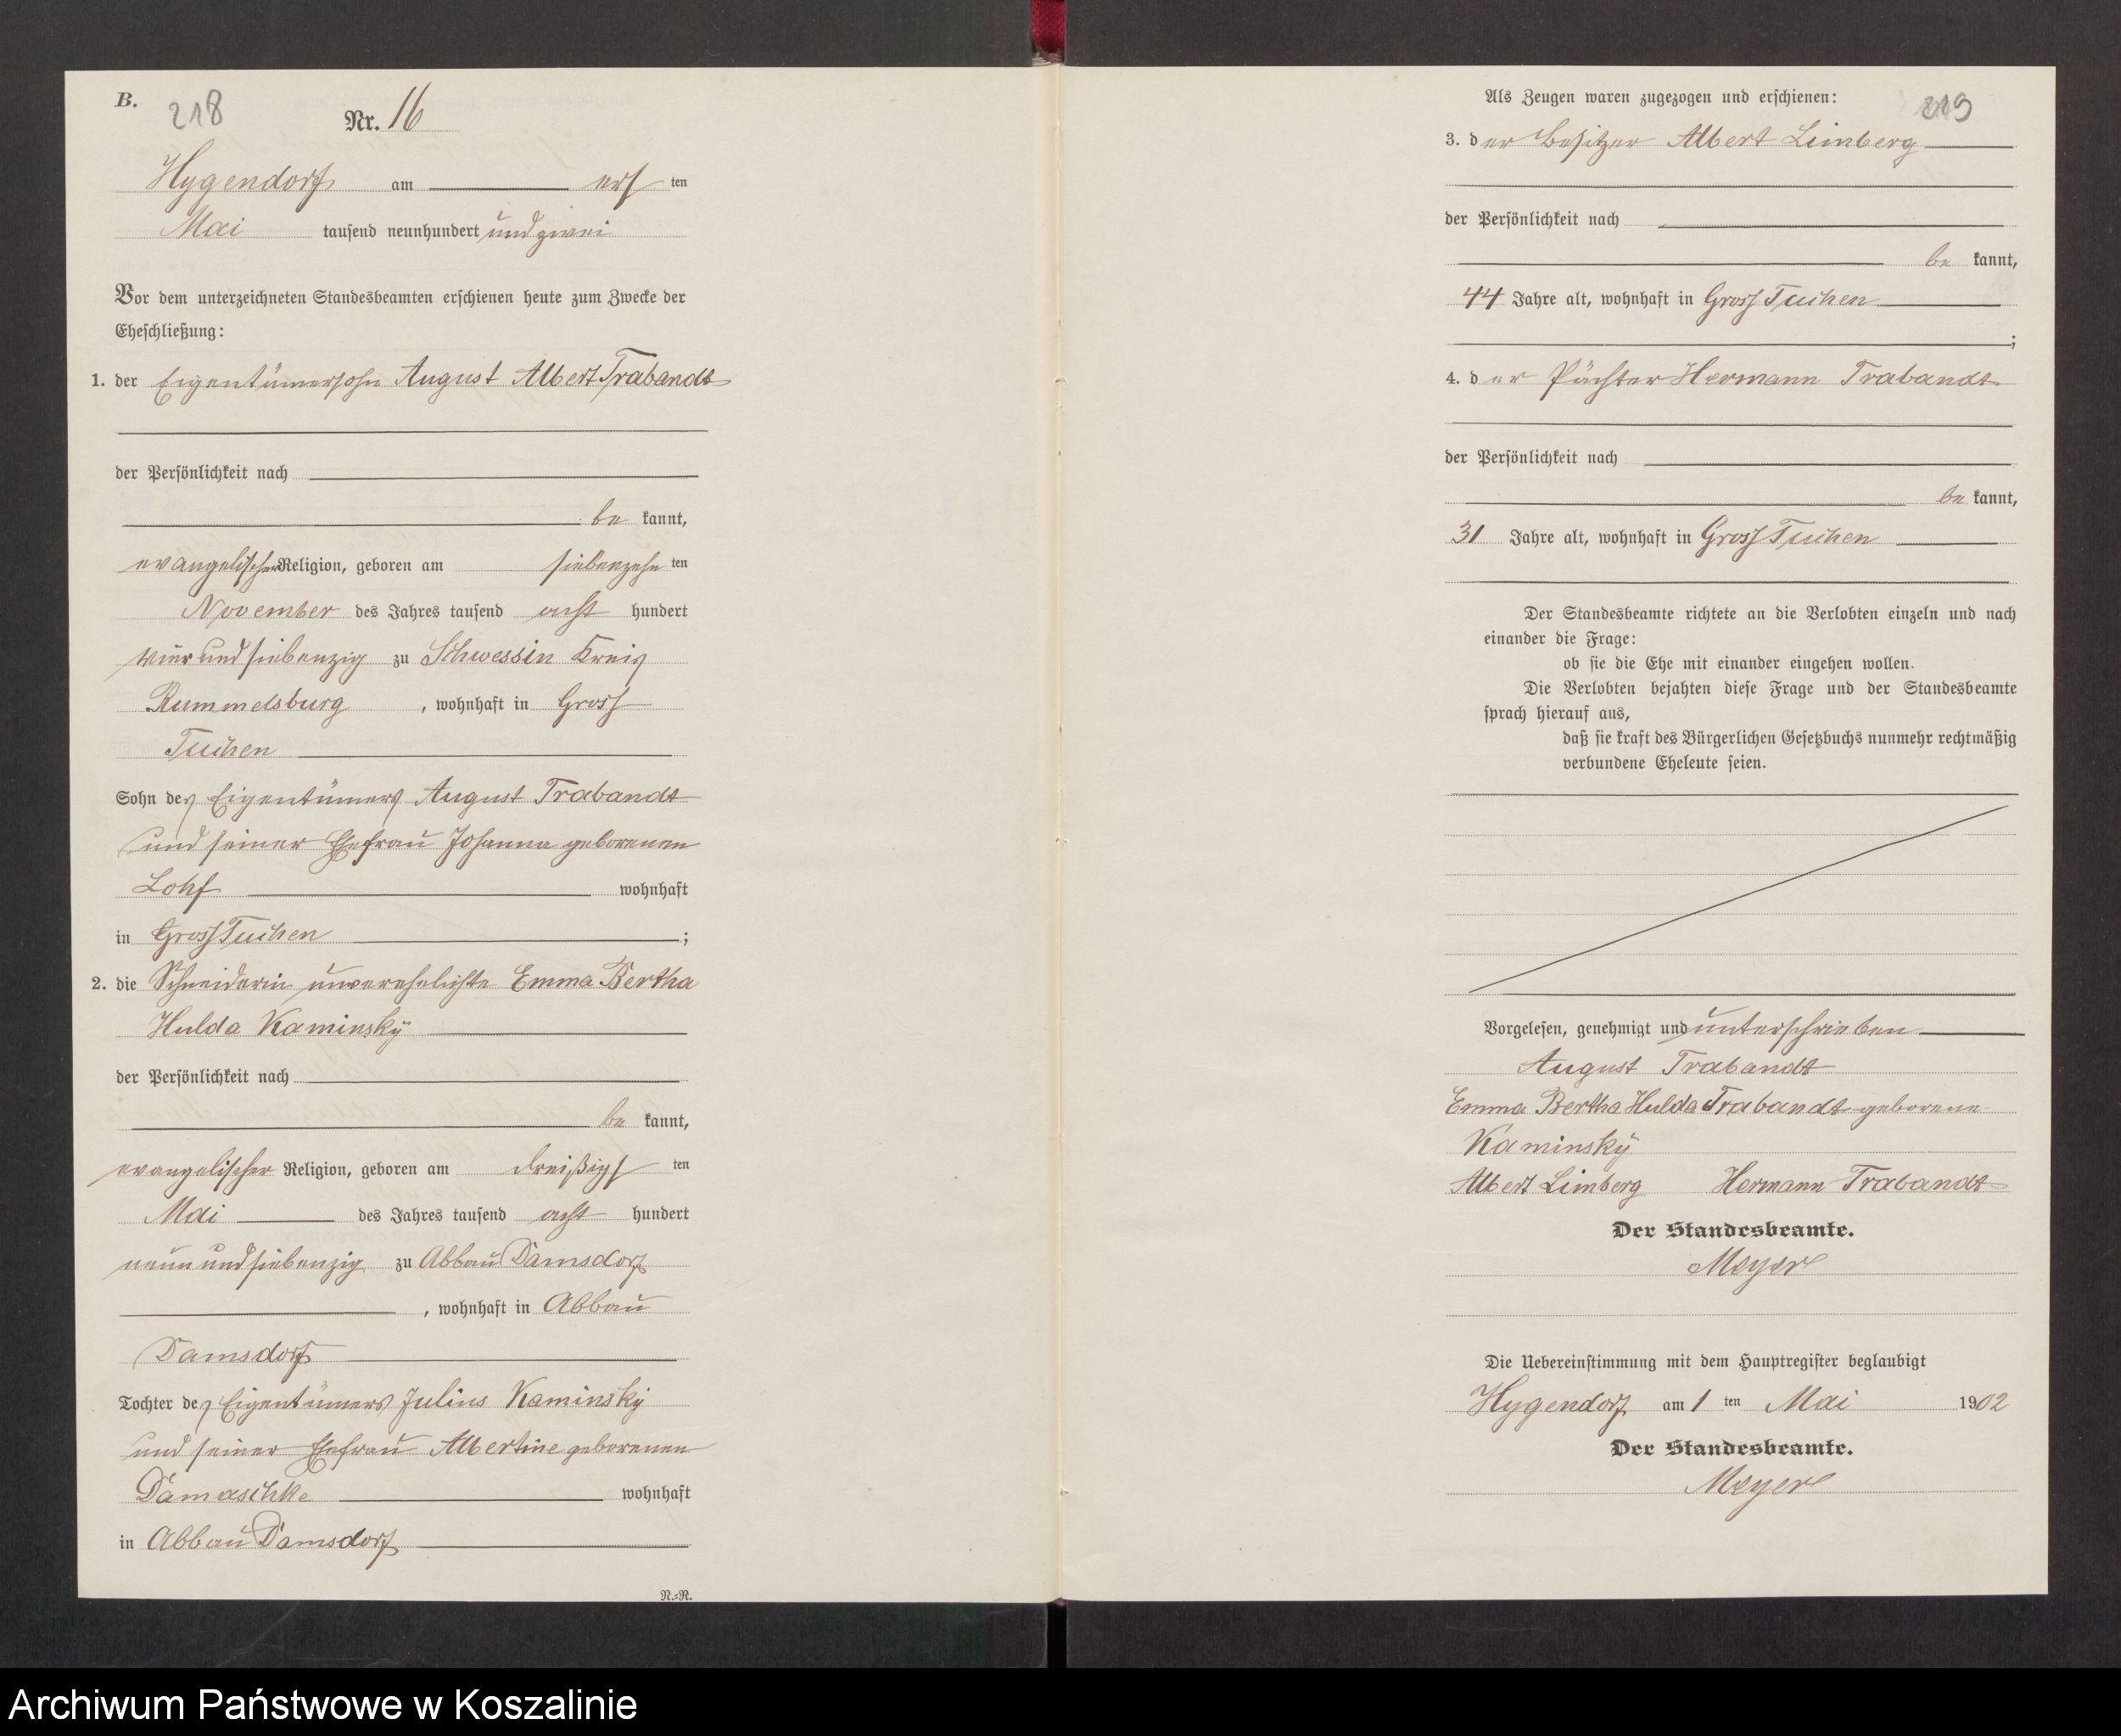 B.
218
Nr. 16
Hygendorf am erſ ten
Mai tauſend neunhundert und zwei
Vor dem unterzeichneten Standesbeamten erſchienen heute zum Zwecke der
Eheſchließung:
1. der Eigentümerſohn August Albert Trabandt
der Perſönlichkeit nach
be kannt,
evangeliſcher Religion, geboren am ſiebenzehn ten
November des Jahres tauſend acht hundert
vier und ſiebenzig zu Schwessin Kreis
Rummelsburg, wohnhaft in Gross
Tuchen
Sohn des Eigentümers August Trabandt
und ſeiner Ehefrau Johanna geborenen
Lohf wohnhaft
in Gross Tuchen;
2. die Schneiderin unverehelichte Emma Bertha
Hulda Kaminsky
der Perſönlichkeit nach
be kannt,
evangeliſcher Religion, geboren am dreißigſ ten
Mai des Jahres tauſend acht hundert
neun und ſiebenzig zu Abbau Damsdorf
, wohnhaft in Abbau
Damsdorf
Tochter des Eigentümers Julius Kaminsky
und ſeiner Ehefrau Albertine geborenen
Damaschke wohnhaft
in Abbau Damsdorf
N.-R.
Als Zeugen waren zugezogen und erſchienen:
219
3. der Beſitzer Albert Limberg
der Perſönlichkeit nach
be kannt,
44 Jahre alt, wohnhaft in Gross Tuchen
;
4. der Pächter Hermann Trabandt
der Perſönlichkeit nach
be kannt,
31 Jahre alt, wohnhaft in Gross Tuchen
Der Standesbeamte richtete an die Verlobten einzeln und nach
einander die Frage:
ob ſie die Ehe mit einander eingehen wollen.
Die Verlobten bejahten dieſe Frage und der Standesbeamte
ſprach hierauf aus,
daß ſie kraft des Bürgerlichen Geſetzbuchs nunmehr rechtmäßig
verbundene Eheleute ſeien.
Vorgeleſen, genehmigt und unterſchrieben
August Trabandt
Emma Bertha Hulda Trabandt geborene
Kaminsky
Albert Limberg Hermann Trabandt
Der Standesbeamte.
Meyer
Die Uebereinſtimmung mit dem Hauptregiſter beglaubigt
Hygendorf am 1 ten Mai 1902
Der Standesbeamte.
Meyer
Archiwum Państwowe w Koszalinie